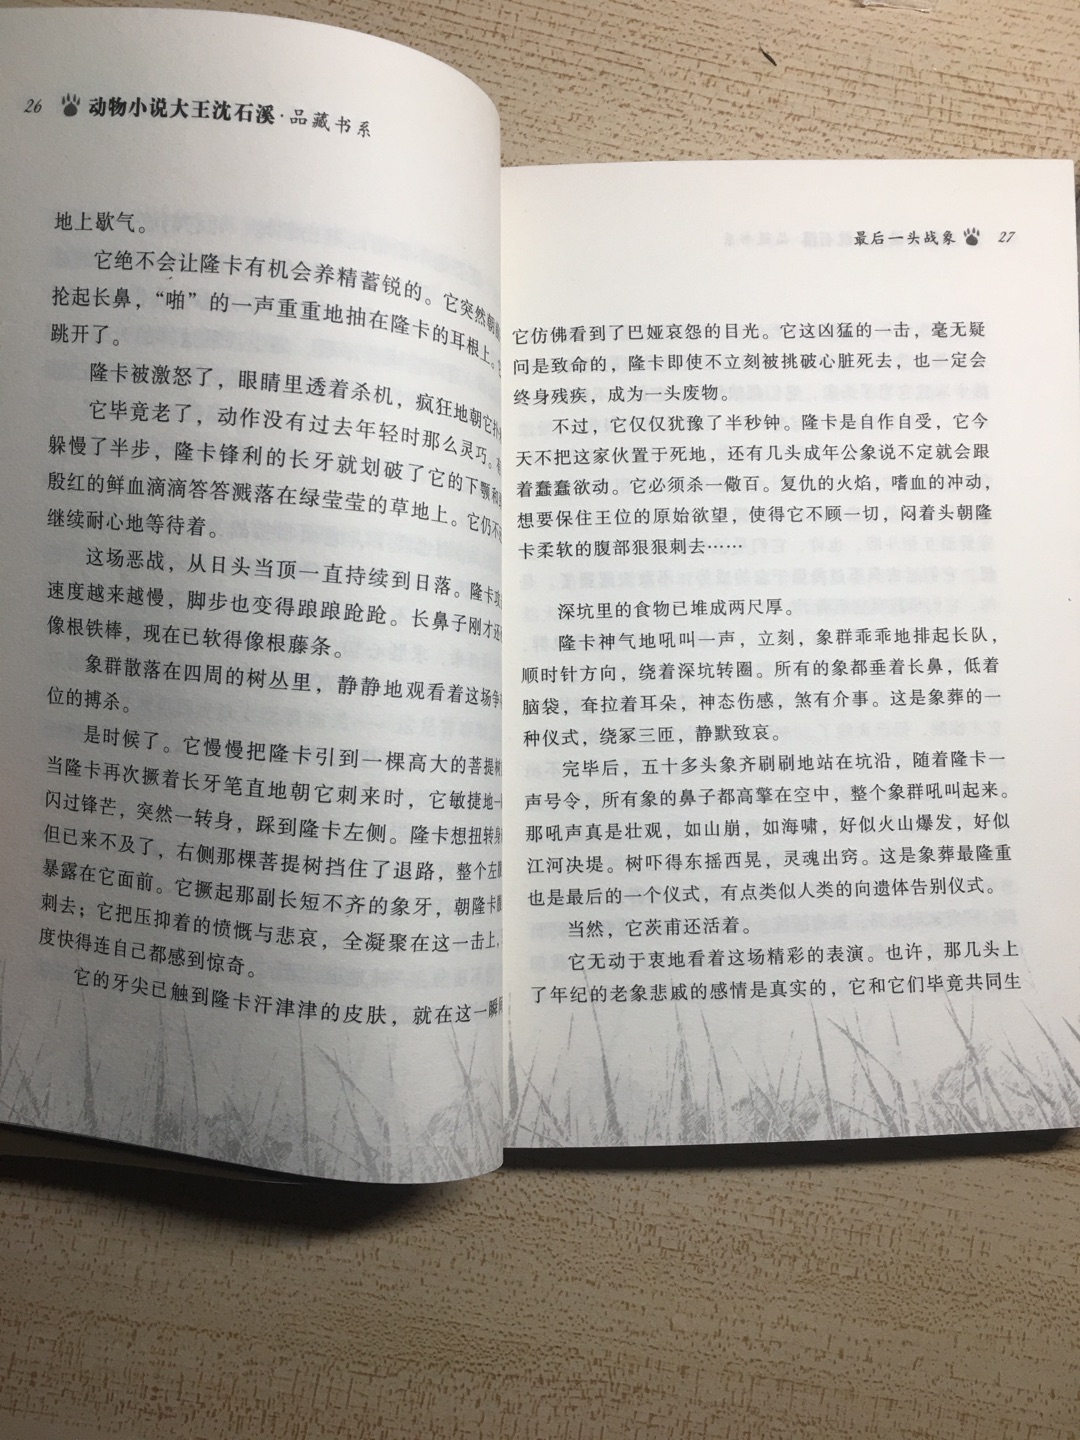 26 动物小说大王沈石溪·品藏书系
地上歇气。
它绝不会让隆卡有机会养精蓄锐的。它突然朝
抡起长鼻，“啪”的一声重重地抽在隆卡的耳根上。
跳开了。
隆卡被激怒了，眼睛里透着杀机，疯狂地朝它扑
它毕竟老了，动作没有过去年轻时那么灵巧。
躲慢了半步，隆卡锋利的长牙就划破了它的下颚和
殷红的鲜血滴滴答答溅落在绿莹莹的草地上。它仍不
继续耐心地等待着。
这场恶战，从日头当顶一直持续到日落。隆卡攻
速度越来越慢，脚步也变得踉踉跄跄。长鼻子刚才还
像根铁棒，现在已软得像根藤条。
象群散落在四周的树丛里，静静地观看着这场争
位的搏杀。
是时候了。它慢慢把隆卡引到一棵高大的菩提树
当隆卡再次撅着长牙笔直地朝它刺来时，它敏捷地一
闪过锋芒，突然一转身，踩到隆卡左侧。隆卡想扭转
但已来不及了，右侧那棵菩提树挡住了退路，整个左
暴露在它面前。它撅起那副长短不齐的象牙，朝隆卡
刺去；它把压抑着的愤慨与悲哀，全凝聚在这一击上，
度快得连自己都感到惊奇。
它的牙尖已触到隆卡汗津津的皮肤，就在这一瞬
最后一头战象 27
它仿佛看到了巴娅哀怨的目光。它这凶猛的一击，毫无疑
问是致命的，隆卡即使不立刻被挑破心脏死去，也一定会
终身残疾，成为一头废物。
不过，它仅仅犹豫了半秒钟。隆卡是自作自受，它今
天不把这家伙置于死地，还有几头成年公象说不定就会跟
着蠢蠢欲动。它必须杀一儆百。复仇的火焰，嗜血的冲动，
想要保住王位的原始欲望，使得它不顾一切，闷着头朝隆
卡柔软的腹部狠狠刺去……
深坑里的食物已堆成两尺厚。
隆卡神气地吼叫一声，立刻，象群乖乖地排起长队，
顺时针方向，绕着深坑转圈。所有的象都垂着长鼻，低着
脑袋，耷拉着耳朵，神态伤感，煞有介事。这是象葬的一
种仪式，绕冢三匝，静默致哀。
完毕后，五十多头象齐刷刷地站在坑沿，随着隆卡一
声号令，所有象的鼻子都高擎在空中，整个象群吼叫起来。
那吼声真是壮观，如山崩，如海啸，好似火山爆发，好似
江河决堤。树吓得东摇西晃，灵魂出窍。这是象葬最隆重
也是最后的一个仪式，有点类似人类的向遗体告别仪式。
当然，它茨甫还活着。
它无动于衷地看着这场精彩的表演。也许，那几头上
了年纪的老象悲戚的感情是真实的，它和它们毕竟共同生